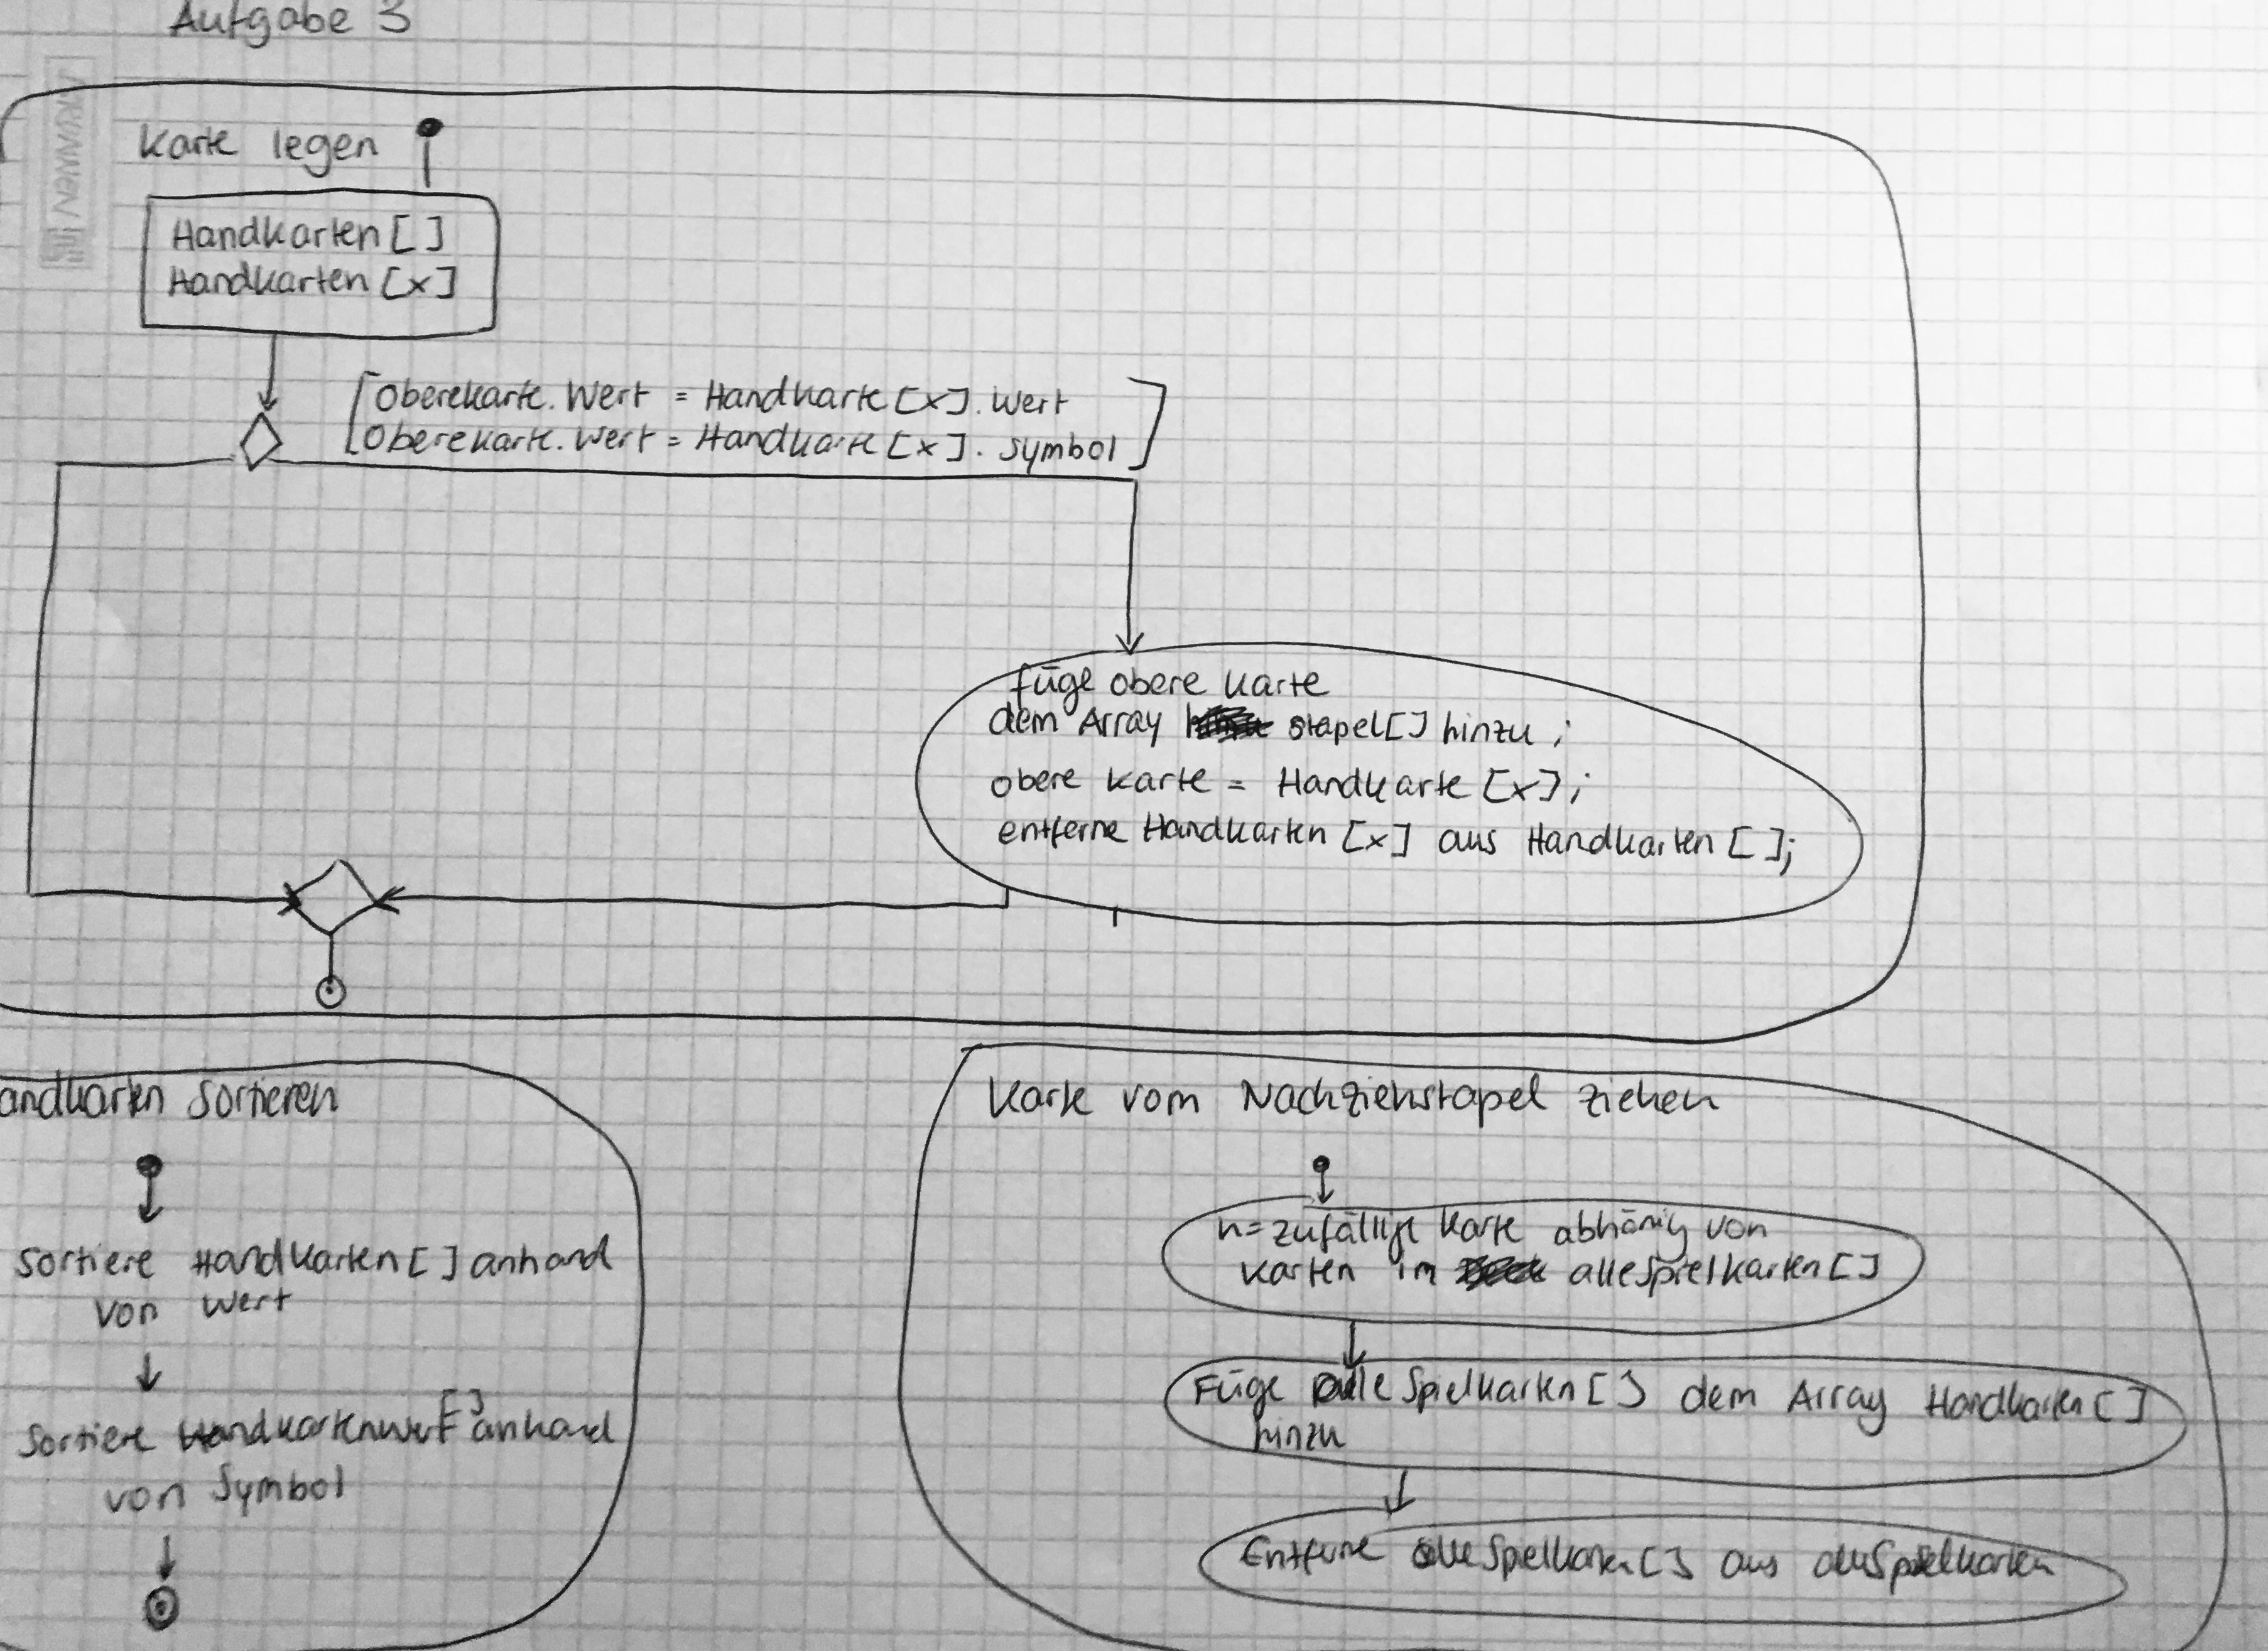 Aufgabe 3
Karte legen
Handkarten []
Handkarten [x]
[Oberekarte.Wert = Handkarte[x].Wert
Oberekarte.Wert = Handkarte[x].Symbol]
füge obere Karte
dem Array stapel[] hinzu ;
obere Karte = Handkarte [x];
entferne Handkarten [x] aus Handkarten [ ];
andkarten sortieren
Sortiere Handkarten[] anhand
von Wert
Sortiere Handkartenwert [] anhand
von Symbol
Karte vom Nachziehstapel ziehen
n=zufällige Karte abhänig von
Karten im alleSpielkarten[]
Füge alleSpielkarten[] dem Array Handkarten[]
hinzu
Entferne alleSpielkarten[] aus alleSpielkarten